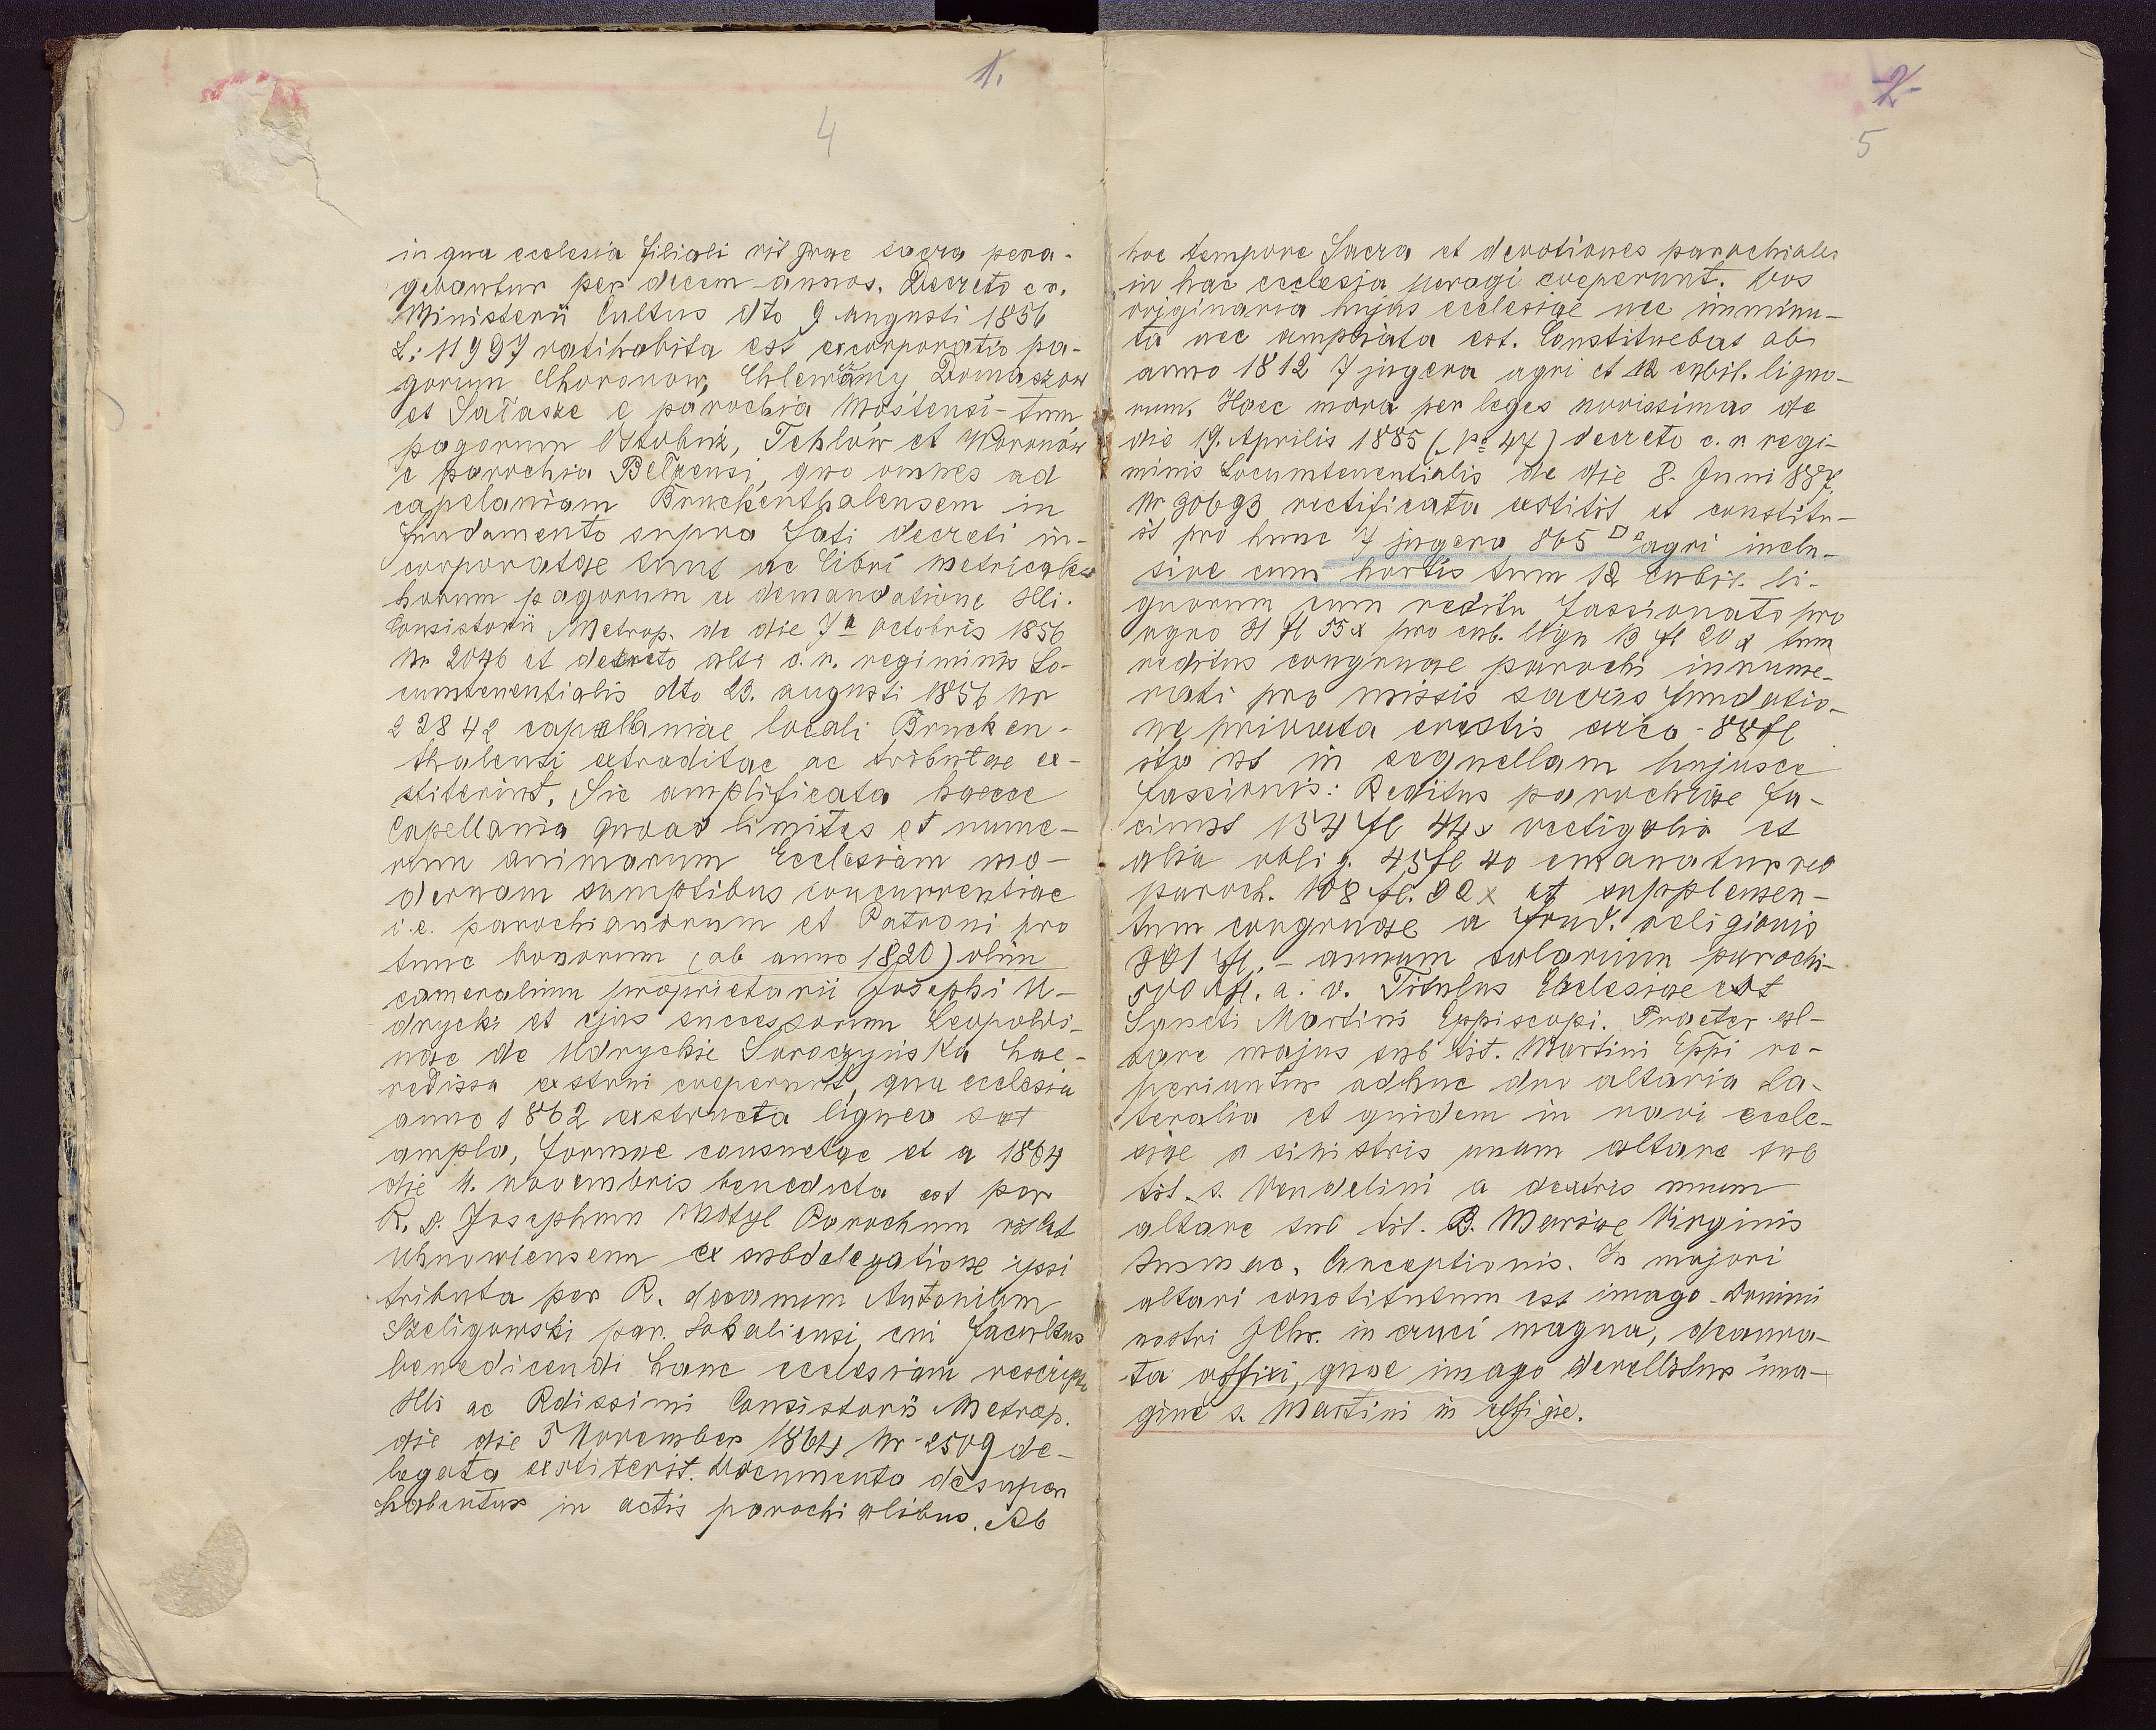 1.
4
in qua ecclesia filiali rit grae sacra pera-
gebantur per decem annos. Decreto c. r.
Ministerii Cultus dto 9 augusti 1856
L: 11997 ratihabita est excorporatio pa-
gorum Choronow, Chlewczany Domaszow
et Sałasze e parochia Mostensi - tum
pagorum Ostobuż, Tehlów et Woronów
e parochia Bełzensi, quo omnes ad
capelaniam Bruckenthalensem in
fundamento supra fati decreti in-
corporatae sunt ac libri metricales
horum pagorum e demandatione Illi.
Consistorii Metrop. de die 7a Octobris 1856
Nr 2046 et decreto alti c. r. regiminis Lo-
cumtenentialis dto 23. augusti 1856 Nr
22842 capellaniae locali Brucken-
thalensi extraditae ac tributae ex-
stiterint. Sic amplificata haecce
Capellania quoad limites et nume-
rum animarum Ecclesiam mo-
dernam sumptibus concurrentiae
i. e. parochianorum et Patroni pro
tunc bonorum (ab anno 1820) olim
cameralium proprietarii Josephi U-
drycki et ejus successorum Leopoldi-
nae de Udryckie Soroczyńska hae-
redissa exstrui coeperunt, qua ecclesia
anno 1862 exstructa lignea sat
ampla, formae consuetae et a 1864
die 11. novembris benedicta est per
R. D. Josephum Motyl Parochum rit lat
Uhnowiensem ex subdelegatione ipsi
tributa per R. decanum Antonium
Szeligowski par. Sokaliensi, cui facultas
benedicendi hanc ecclesiam rescripto
Illi ac Rdissimi Consistorii Metrop.
die die 5 November 1864 Nr 2509 de-
legata exstiterit. Documenta desuper
habentur in actis parochialibus. Ab
2
5
hoc tempore Sacra et devotiones parochiales
in hac ecclesia peragi coeperunt. Dos
originaria hujus ecclesiae nec imminu-
ta nec ampliata est. Constituebat ab
anno 1812 7 jugera agri et 12 cubil. ligno-
rum. Haec mora per leges novissimas de
die 19. Aprilis 1885 (No 47) decreto c. r. regi-
minis Locumtenentialis de die 8. Juni 887
Nr 30693 rectificata exstitit et constitu-
it pro hunc 7 jugera 865 □° agri inclu-
sive cum hortis tum 12 cubil. li-
gnorum cum reditu fassionato pro
agro 31 fl 55 x pro cub. lign 13 fl 20 x tum
reditus congruae parochi innume-
rati pro missis sacris fundatio-
ne privata erectis circa - 88 fl
ita ut in sequellam hujusce
fassionis: Reditus parochiae fa-
ciunt 154 fl 44 x vectigalia et
alia oblig. 45 fl 40 emanatur red
paroch. 108 fl. 92 x et supplemen-
tum congruae a fund. religionis
391 fl. - annum salarium parochi-
500 fl. a. v. Titulus Ecclesiae est
Sancti Martini Eppiscopi. Praeter al-
tare majus sub tit. Martini Eppi re-
periuntur adhuc duo altaria la-
teralia et quidem in navi eccle-
siae a sinistris unum altare sub
tit. s. Vendelini a dextris unum
altare sub tit. B. Mariae Virginis
Immac. Conceptionis. In majori
altari constitutum est imago Domini
nostri J Chr. in cruci magna, deaura-
ta affixi, quae imago devellitur ima-
gine s. Martini in effigie.